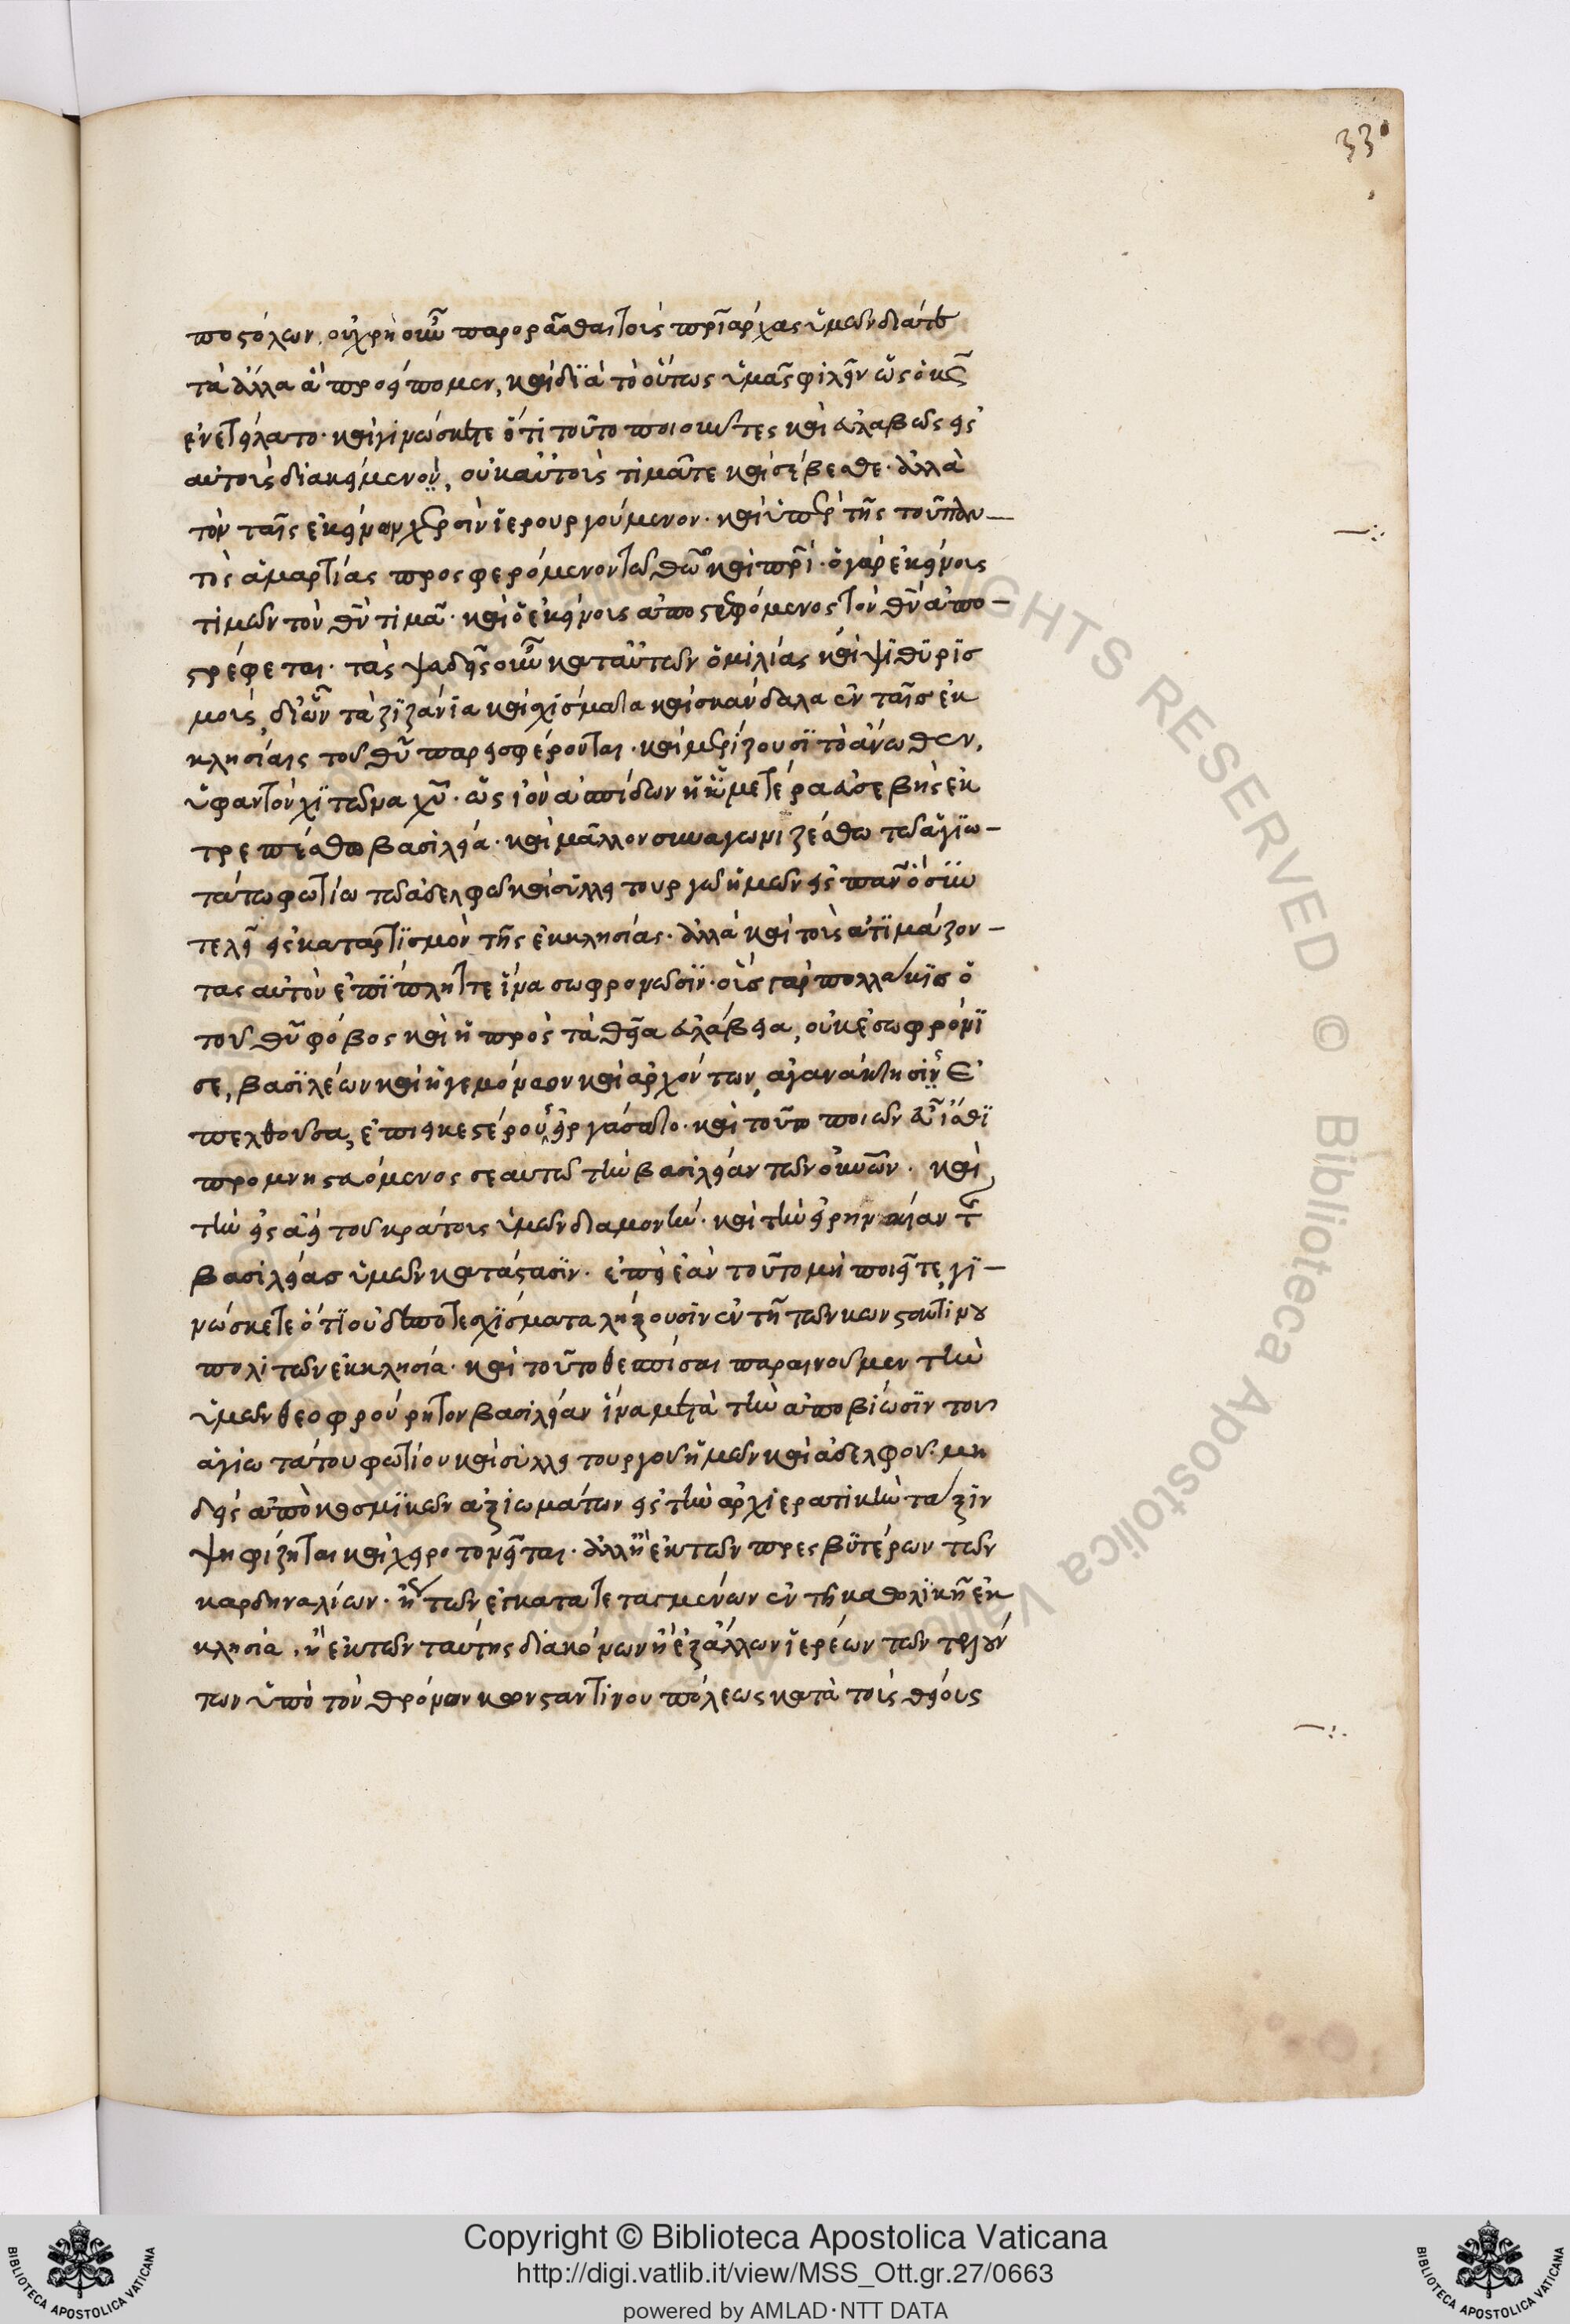 330
ποστόλων. οὐ χρὴ οὖν παρορᾶσθαι τοὺς πριάρχας ὑμῶν διά τε
τὰ ἄλλα ἃ προείπομεν, καὶ διὰ τὸ οὕτως ὑμᾶς φιλεῖν ὡς ὁ κς
ἐνετείλατο· καὶ γινώσκετε ὅτι τοῦτο ποιοῦντες καὶ εὐλαβῶς εἰς
αὐτοὺς διακείμενοι, οὐκ αὐτοὺς τιμᾶτε καὶ σέβεσθε· ἀλλὰ
τὸν ταῖς ἐκείνων χερσὶν ἱερουργούμενον· καὶ ὑπὲρ τῆς τοῦ παν–
τὸς ἁμαρτίας προσφερόμενον τῶ θῶ καὶ πρί· ὁ γὰρ ἐκείνους
τιμῶν τὸν θν τιμᾶ· καὶ ὁ ἐκείνους ἀποστρεφόμενος τὸν θν ἀπο–
στρέφεται· τὰς ψευδεῖς οὖν κατ αὐτῶν ὁμιλίας καὶ ψιθυρισ
μοὺς, δι ὧν τὰ ζιζάνια καὶ σχίσματα καὶ σκάνδαλα ἐν ταῖς ἐκ
κλησίαις τοῦ θυ παρεισφέρονται· καὶ μερίζουσι τὸ ἄνωθεν,
ὑφαντὸν χιτῶνα χυ· ὡς ἰὸν ἀσπίδων ἡ ὑμετέρα εὐσεβὴς ἐκ
τρεπέσθω βασιλεία· καὶ μᾶλλον συναγωνιζέσθω τῶ ἁγιω–
τάτω φωτίω τῶ ἀδελφῶ καὶ συλλειτουργῶ ἡμῶν εἰς παν ὁσίω
τελεῖ εἰς καταρτισμὸν τῆς ἐκκλησίας· ἀλλὰ καὶ τοὺς ἀτιμάζον–
τας αὐτὸν ἐπιπλήττε ἵνα σωφρονῶσιν· οὓς γὰρ πολλάκις ὁ
τοῦ θυ φόβος καὶ ἡ πρὸς τὰ θεῖα εὐλάβεια, οὐκ ἐσωφρόνι
σε, βασιλέων καὶ ἡγεμόνων καὶ ἀρχόντων, ἀγανάκτησις ἐ
πελθοῦσα, ἐπιεικεστέρους εἰργάσατο· καὶ τοῦτο ποιῶν εὖ ἴσθι
προμνηστευόμενος σεαυτῶ τὴν βασιλείαν τῶν οὐνῶν· καὶ
τὴν εἰς ἀεὶ τοῦ κράτους ὑμῶν διαμονήν· καὶ τὴν εἰρηναίαν τῆς
βασιλείας ὑμῶν κατάστασιν· ἐπεὶ ἐὰν τοῦτο μὴ ποιεῖτε, γι–
νώσκετε ὅτι οὐδέποτε σχίσματα λήξουσιν ἐν τῆ τῶν κωνσταντινου
πολιτῶν ἐκκλησία· καὶ τοῦτο θεσπίσαι παραινοῦμεν τὴν
ὑμῶν θεοφρούρητον βασιλείαν ἵνα μετὰ τὴν ἀποβίωσιν τοῦ
ἁγιωτάτου φωτίου καὶ συλλειτουργοῦ ἡμῶν καὶ ἀδελφοῦ· μη
δεὶς ἀπὸ κοσμικῶν ἀξιωμάτων εἰς τὴν ἀρχιερατικὴν τάξιν
ψηφίζηται καὶ χειροτονεῖται· ἀλλ ἢ ἐκ τῶν πρεσβυτέρων τῶν
καρδηναλίων· ἢ τῶν ἐγκατατεταγμένων ἐν τῆ καθολικῆ ἐκ
κλησία, ἢ ἐκ τῶν ταύτης διακόνων ἢ ἐξ ἄλλων ἱερέων τῶν τελούν
των ὑπὸ τὸν θρόνον κωνσταντίνου πόλεως κατὰ τοὺς θείους
Copyright © Biblioteca Apostolica Vaticana
http://digi.vatlib.it/view/MSS_Ott.gr.27/0663
powered by AMLAD·NTT DATA